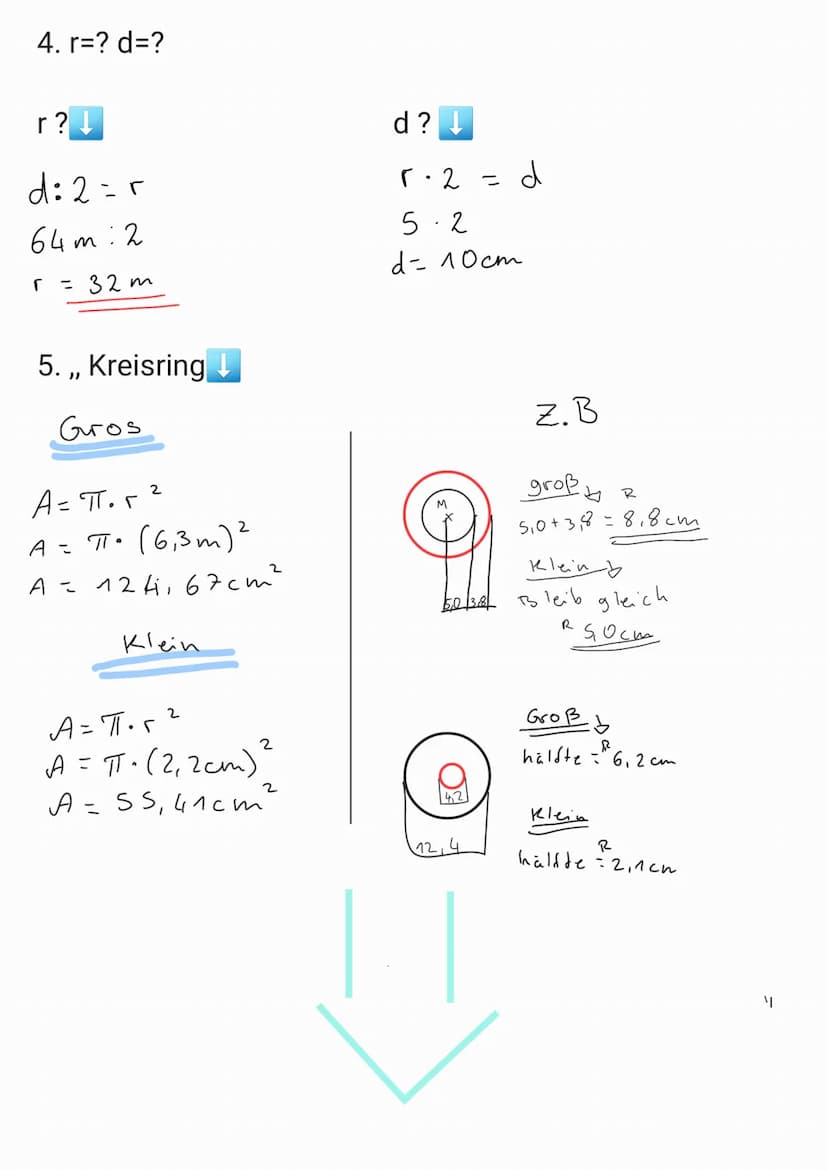 4. r=? d=?
r ?⬇️
d:2=r
64m:2
r = 32 m
d ?⬇️
r·2 = d
5·2
d= 10cm
5. „ Kreisring⬇️
Gros
A=π·r²
A = π·(6,3m)²
A = 124,67cm²
Klein
A=π·r²
A = π·(2,2cm)²
A = 55,41cm²
Z.B
M
5,0 3,8
groß↓ R
5,0+3,8 = 8,8cm
Klein↓
Bleib gleich
R 5,0cm
4,2
12,4
Groß↓
hälfte = R 6,2cm
Klein
hälfte = R 2,1cm
4